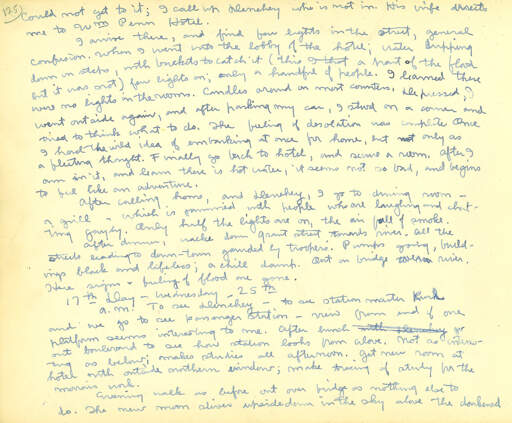 125)
Could not get to it; I call up Dlenehey who is not in. His wife directs
me to Wm Penn Hotel.
I arrive there, and find few lights in the street, general
confusion. When I went into the lobby of the hotel; water dripping
down in steps, with buckets to catch it (this I that a part of the flood
but it was not) few lights on; only a handful of people. I learned there
were no lights in the rooms. Candles around on most counters. Depressed, I
went outside again, and after parking my car, I stood on a corner and
tried to think what to do. The feeling of desolation was complete. Once
I had the wild idea of embarking at once for home, but not only as
a fleeting thought. Finally go back to hotel, and secure a room. After I
am in it, and learn there is hot water, it seems not so bad, and begins
to feel like an adventure.
After calling home, and Dlenehey, I go to dining room –
a grill – which is jammed with people who are laughing and chat-
ting gayly. Only half the lights are on, the air full of smoke.
After dinner, walk down Grant street towards river. All the
streets leading to down-town guarded by troopers. Pumps going, build-
ings black and lifeless; a chill damp. Out on bridge over river.
Here signs & feeling of flood are gone.
17th Day – Wednesday – 25th
a.m. To see Dlenehey – to see station master Kirk
and we go to see passenger station – view from end of one
platform seems interesting to me. After lunch with Dlenehey go
out boulevard to see how station looks from above. Not as interes-
ting as below; makes studies all afternoon. Get new room at
hotel with outside northern windows; make tracing of study for the
morning's work.
Evening walk as before out over bridge as nothing else to
do. The new moon slives upside down in the sky above the darkened